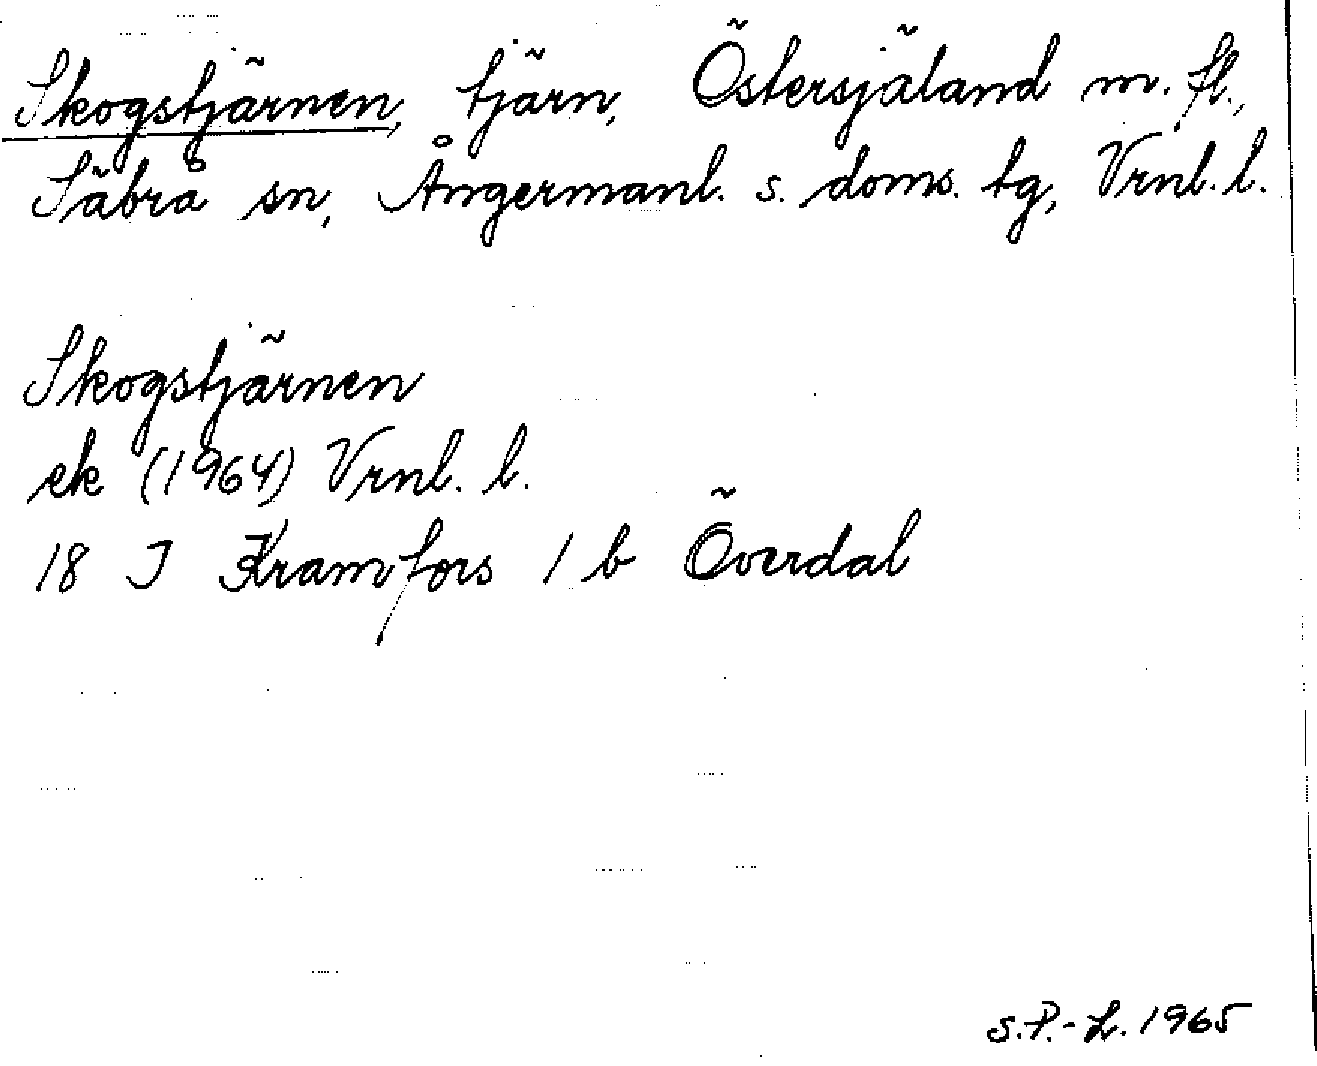 Skogstjärnen, tjärn, Östersjäland m. fl.,
Säbrå sn, Ångermanl. s. doms. tg, Vrnl. l.
Skogstjärnen
ek (1964) Vrnl. l.
18 I Kramfors 1 b Överdal
S.P.-L. 1965